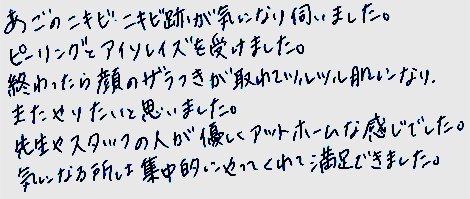 あごのニキビ・ニキビ跡が気になり伺いました。
ピーリングとアイソレイズを受けました。
終わったら顔のザラつきが取れてツルツル肌になり、
またやりたいと思いました。
先生やスタッフの人が優しくアットホームな感じでした。
気になる所は集中的にやってくれて満足できました。